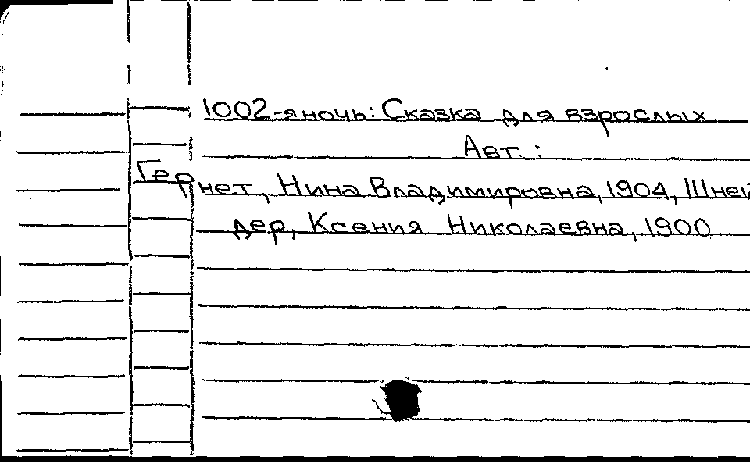 1002-я ночь: Сказка для взрослых
Авт.:
Гернет, Нина Владимировна, 1904, Шней
дер, Ксения Николаевна, 1900